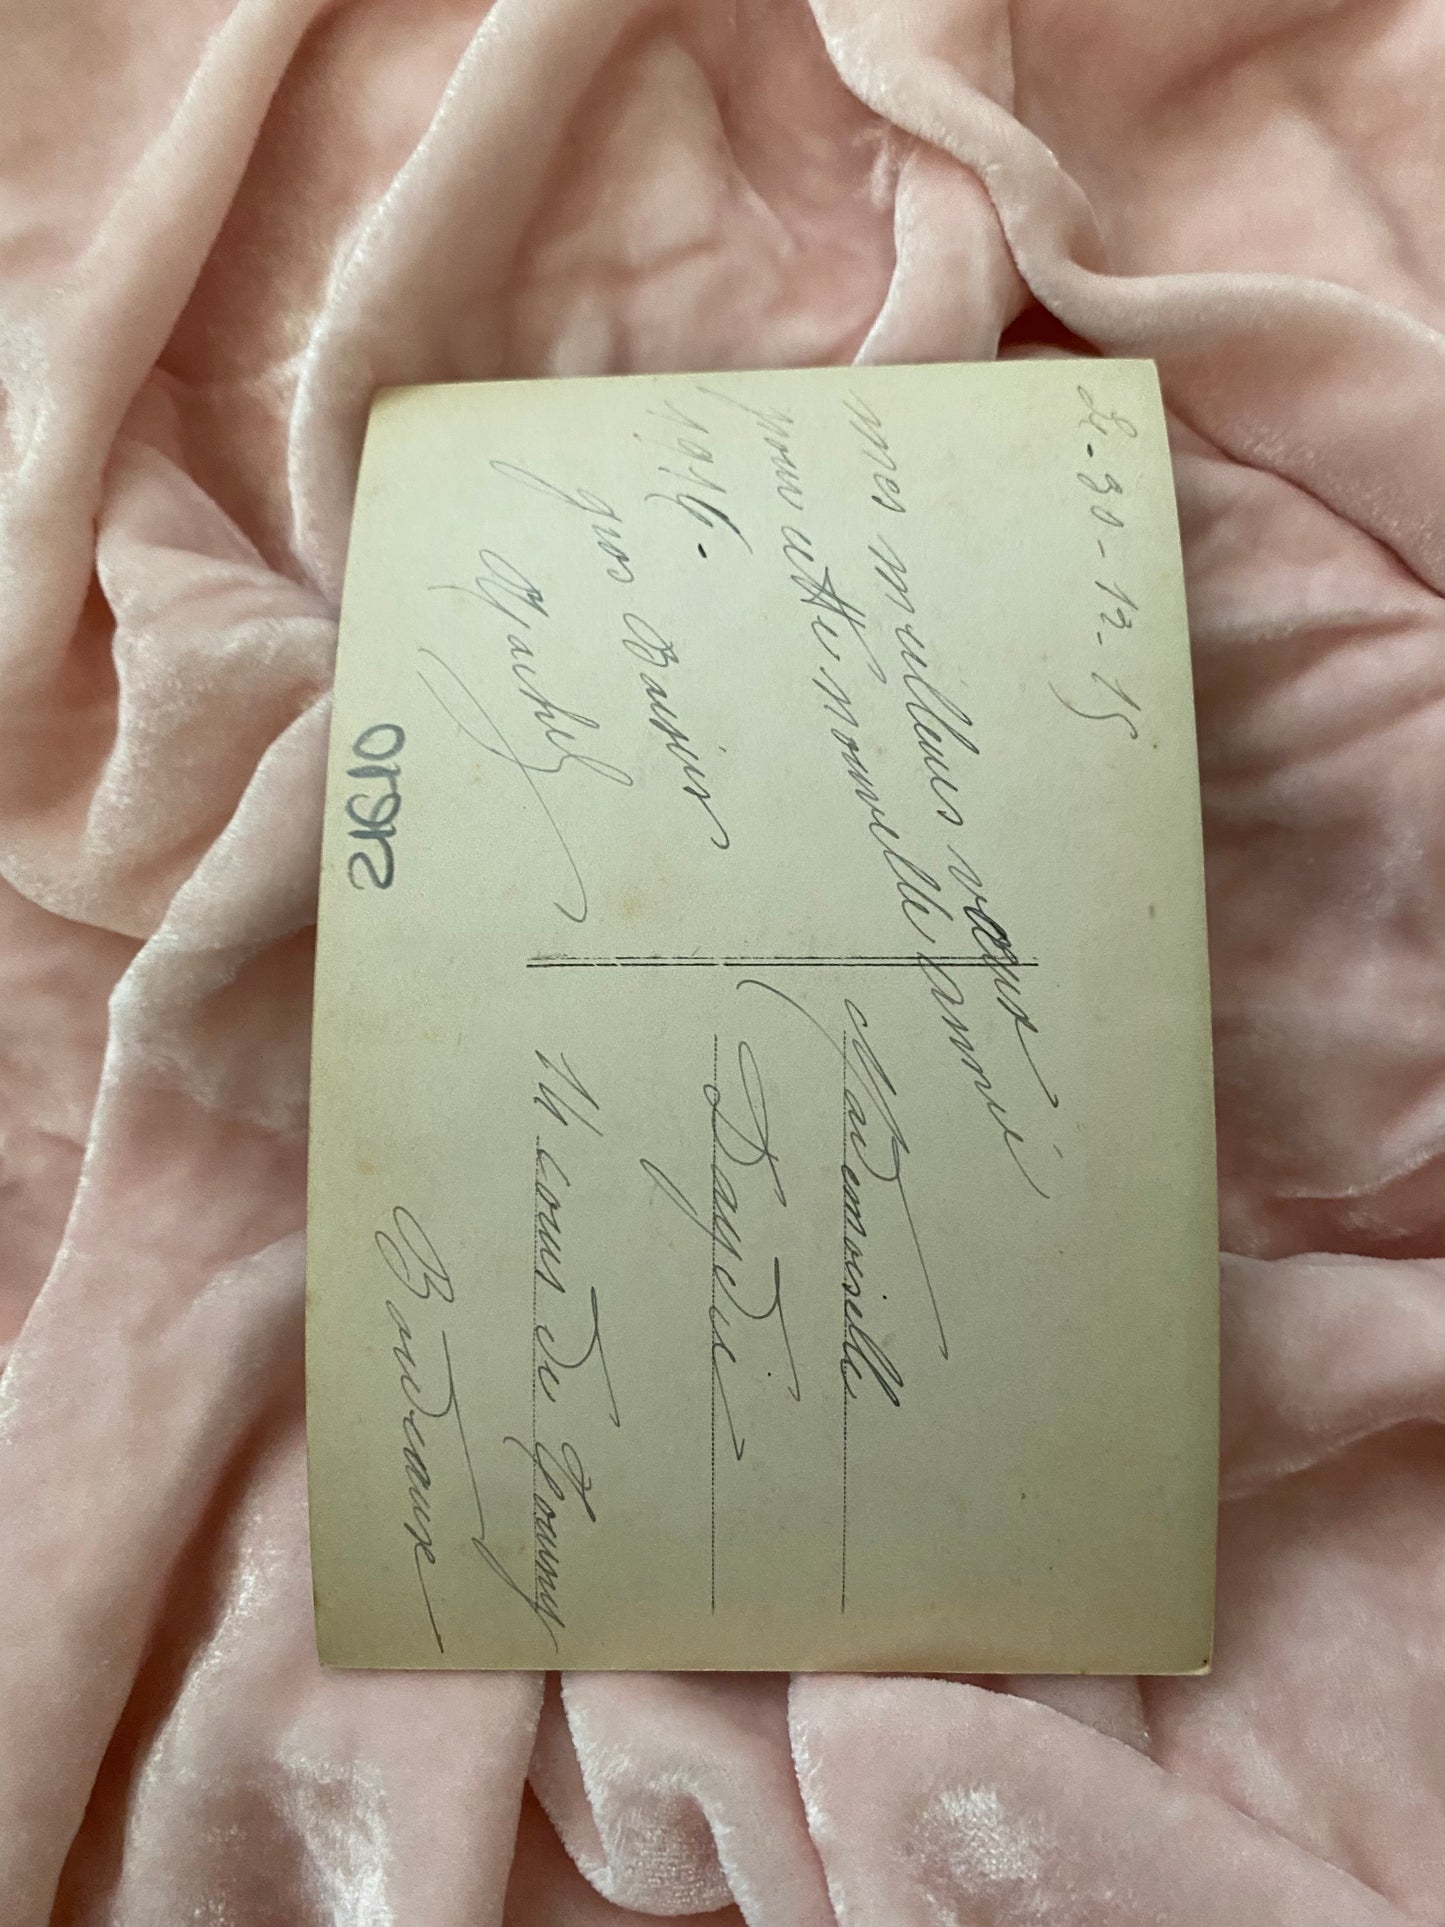 Le 30-12-15
mes meilleurs vœux
pour cette nouvelle année
1916.
gros Baisers
21610
Mademoiselle
14 cours du
Bordeaux